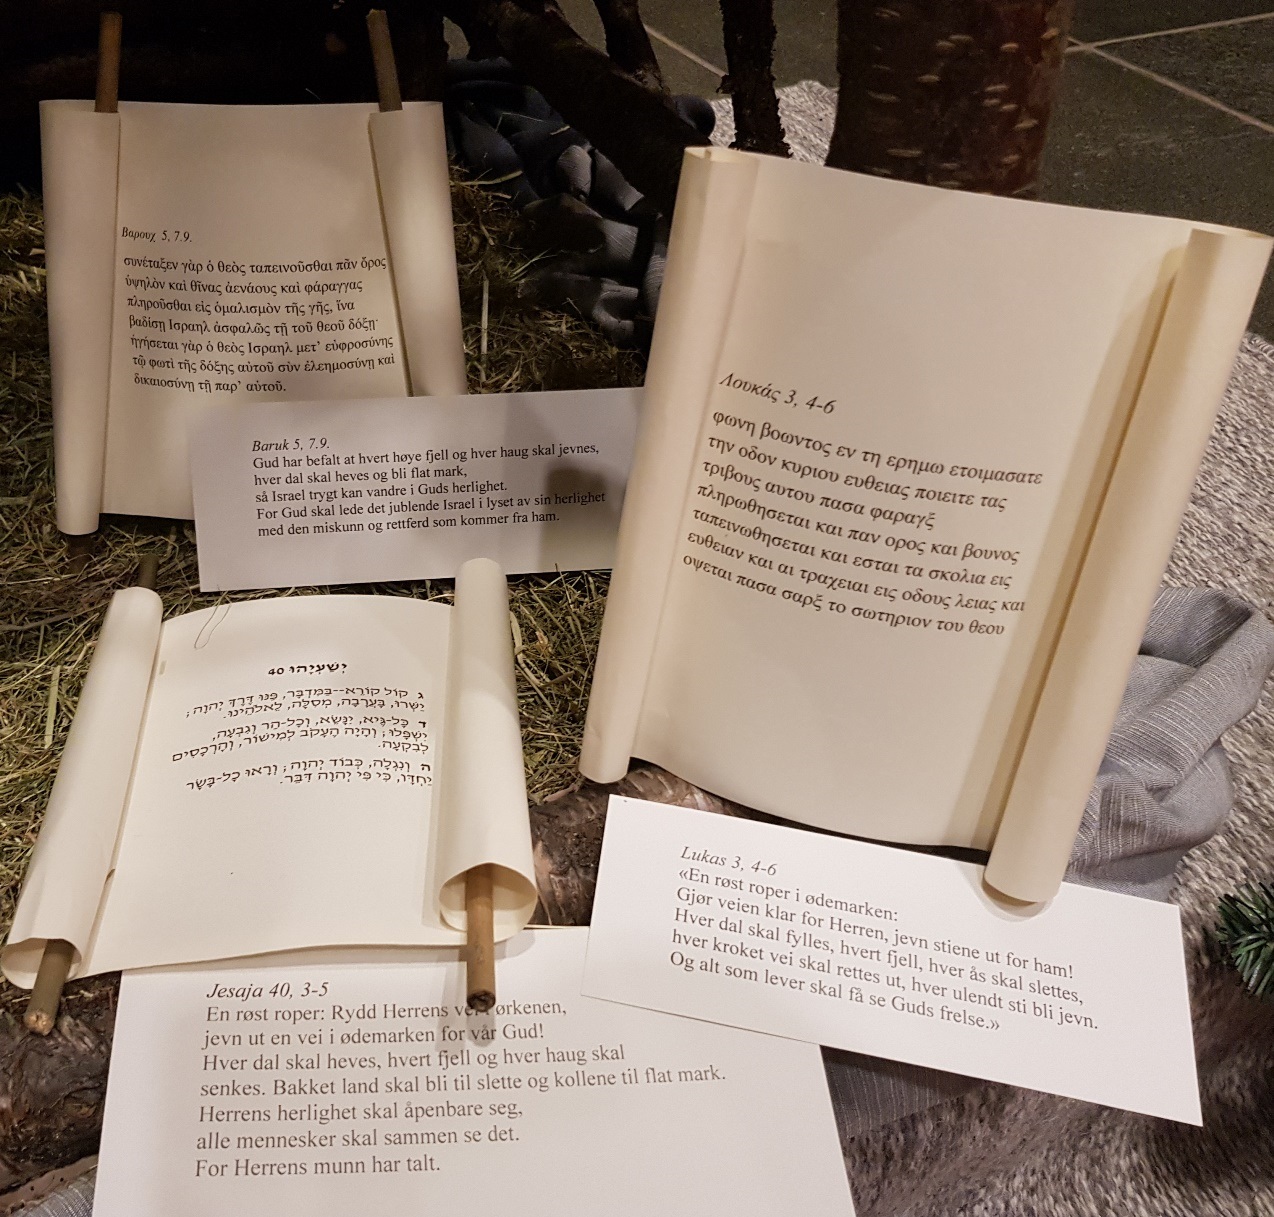 Βαρουχ 5, 7.9.
συνέταξεν γὰρ ὁ θεὸς ταπεινοῦσθαι πᾶν ὄρος
ὑψηλὸν καὶ θῖνας ἀενάους καὶ φάραγγας
πληροῦσθαι εἰς ὁμαλισμὸν τῆς γῆς, ἵνα
βαδίσῃ Ισραηλ ἀσφαλῶς τῇ τοῦ θεοῦ δόξῃ·
ἡγήσεται γὰρ ὁ θεὸς Ισραηλ μετ’ εὐφροσύνης
τῷ φωτὶ τῆς δόξης αὐτοῦ σὺν ἐλεημοσύνῃ καὶ
δικαιοσύνῃ τῇ παρ’ αὐτοῦ.
Baruk 5, 7.9.
Gud har befalt at hvert høye fjell og hver haug skal jevnes,
hver dal skal heves og bli flat mark,
så Israel trygt kan vandre i Guds herlighet.
For Gud skal lede det jublende Israel i lyset av sin herlighet
med den miskunn og rettferd som kommer fra ham.
Λουκάς 3, 4-6
φωνη βοωντος εν τη ερημω ετοιμασατε
την οδον κυριου ευθειας ποιειτε τας
τριβους αυτου πασα φαραγξ
πληρωθησεται και παν ορος και βουνος
ταπεινωθησεται και εσται τα σκολια εις
ευθειαν και αι τραχειαι εις οδους λειας και
οψεται πασα σαρξ το σωτηριον του θεου
Lukas 3, 4-6
«En røst roper i ødemarken:
Gjør veien klar for Herren, jevn stiene ut for ham!
Hver dal skal fylles, hvert fjell, hver ås skal slettes,
hver kroket vei skal rettes ut, hver ulendt sti bli jevn.
Og alt som lever skal få se Guds frelse.»
יְשַׁעְיָהוּ 40
ג קוֹל קוֹרֵא--בַּמִּדְבָּר, פַּנּוּ דֶּרֶךְ יְהוָה;
יַשְּׁרוּ, בָּעֲרָבָה, מְסִלָּה, לֵאלֹהֵינוּ.
ד כָּל-גֶּיא, יִנָּשֵׂא, וְכָל-הַר וְגִבְעָה,
יִשְׁפָּלוּ; וְהָיָה הֶעָקֹב לְמִישׁוֹר, וְהָרְכָסִים
לְבִקְעָה.
ה וְנִגְלָה, כְּבוֹד יְהוָה; וְרָאוּ כָל-בָּשָׂר
יַחְדָּו, כִּי פִּי יְהוָה דִּבֵּר.
Jesaja 40, 3-5
En røst roper: Rydd Herrens ørkenen,
jevn ut en vei i ødemarken for vår Gud!
Hver dal skal heves, hvert fjell og hver haug skal
senkes. Bakket land skal bli til slette og kollene til flat mark.
Herrens herlighet skal åpenbare seg,
alle mennesker skal sammen se det.
For Herrens munn har talt.